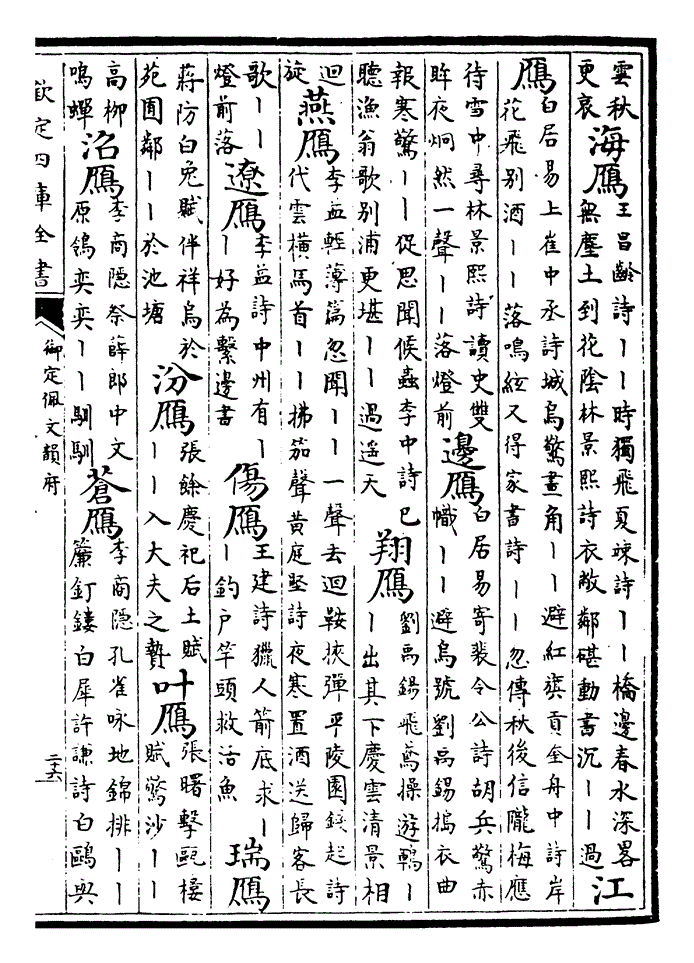 雲秋更哀 海鴈 王昌齡詩丨丨時獨飛夏竦詩丨丨橋邊春水深畧無塵土到花陰林景熙詩衣敝鄰碪動書沉丨丨過 江
鴈 白居易上崔中丞詩城烏驚畫角丨丨避紅旗貢金舟中詩岸花飛别酒丨丨落鳴絃又得家書詩丨丨忽傳秋後信隴梅應
待雪中尋林景熙詩讀史雙眸夜炯然一聲丨丨落燈前 邊鴈 白居易寄裴令公詩胡兵驚赤幟丨丨避烏號劉禹錫搗衣曲
報寒驚丨丨促思聞候蟲李中詩已聽漁翁歌别浦更堪丨丨過遥天 翔鴈 劉禹錫飛鳶操遊鵾丨丨出其下慶雲清景相
迴旋 燕鴈 李益輕薄篇忽聞丨丨一聲去迴鞍挾彈平陵園錢起詩代雲横馬首丨丨拂笳聲黄庭堅詩夜寒置酒送歸客長
歌丨丨燈前落 遼鴈 李益詩中州有丨丨好為繫邊書 傷鴈 王建詩獵人箭底求丨丨釣户竿頭救活魚 瑞鴈
蔣防白兔賦伴祥烏於苑囿鄰丨丨於池塘 汾鴈 張餘慶祀后土賦丨丨入大夫之贄 叶鴈 張曙擊甌樓賦驚沙丨丨
高栁鳴蟬 沼鴈 李商隱祭薛郎中文原鴒奕奕丨丨馴馴 蒼鴈 李商隱孔雀咏地錦排丨丨簾釘鏤白犀許謙詩白鷗與
欽定四庫全書
御定佩文韻府
二十六